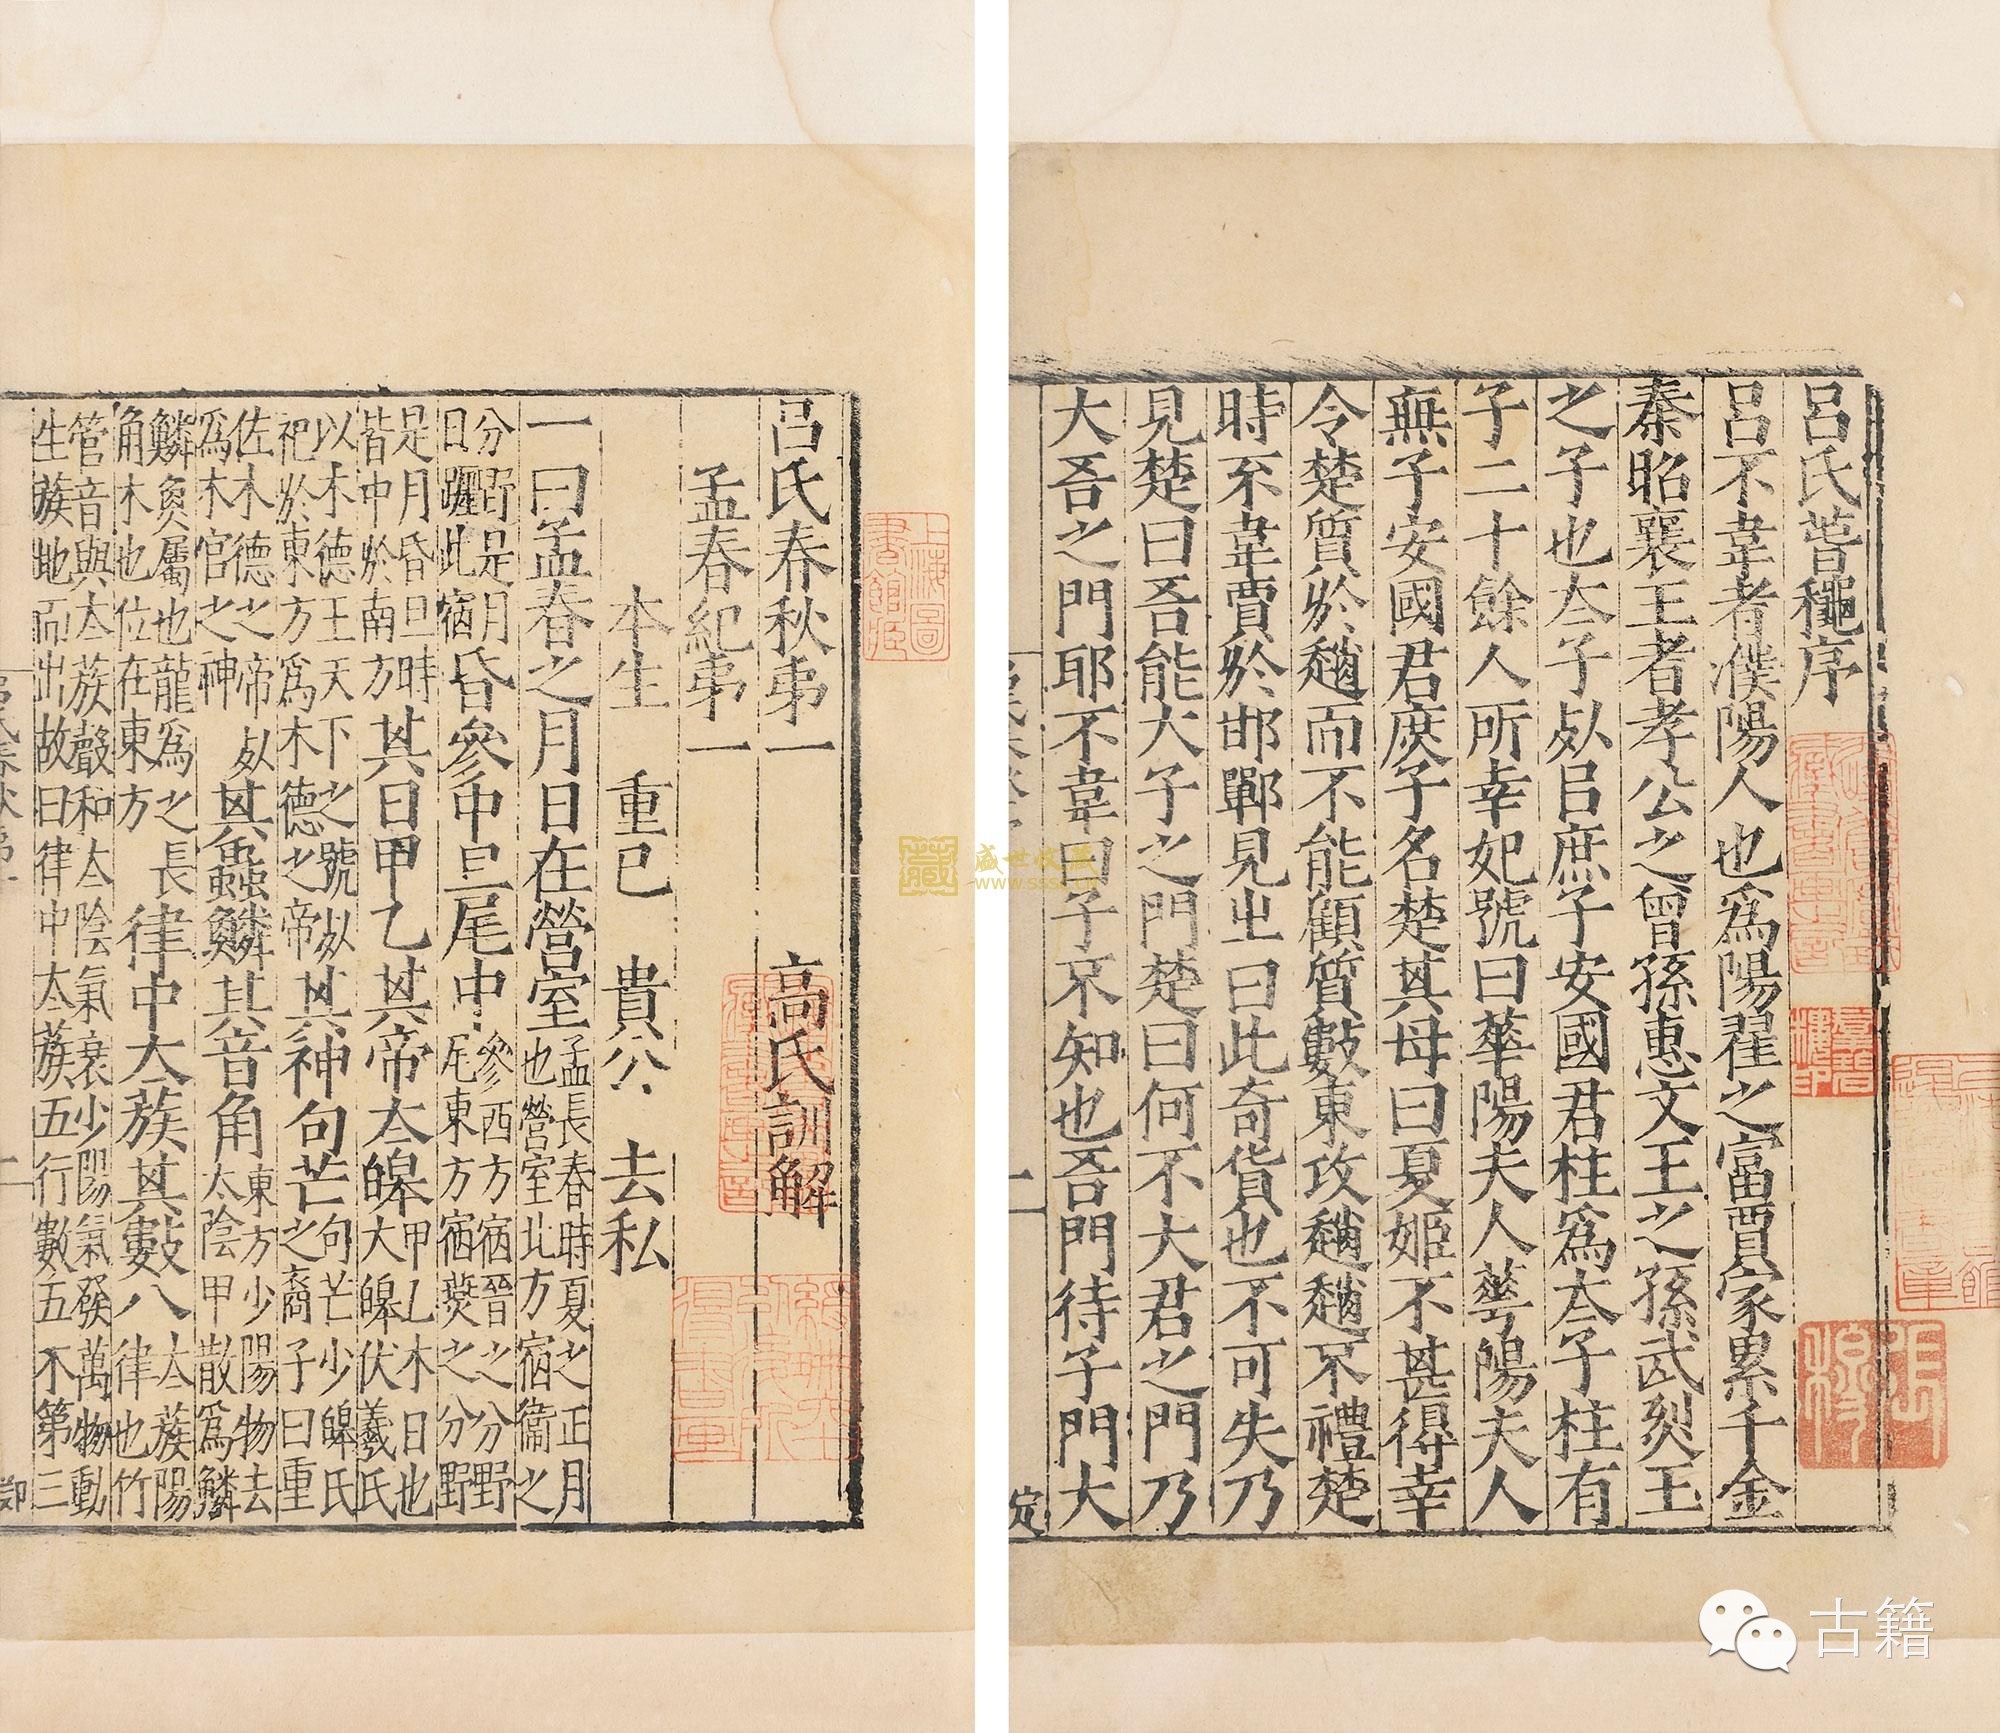 呂氏萅穐序
呂不韋者濮陽人也爲陽翟之富賈家累千金
秦昭襄王者孝公之曾孫惠文王之孫武烈王
之子也夳子死㠯庶子安國君柱爲夳子柱有
子二十餘人所幸妃號曰華陽夫人華陽夫人
無子安國君庶子名楚其母曰夏姬不甚得幸
令楚質於趙而不能顧質數東攻趙趙不禮楚
時不韋賈於邯鄲見之曰此奇貨也不可失乃
見楚曰吾能大子之門楚曰何不大君之門乃
大吾之門耶不韋曰子不知也吾門待子門大
二
定
呂氏春秋弟一 高氏訓解
孟春紀弟一
本生 重己 貴公 去私
一曰孟春之月日在營室孟長春時夏之正月也營室北方宿衞之
分野是月日躔此宿昏參中旦尾中參西方宿晉之分野尾東方宿燕之分野
是月昏旦時皆中於南方其日甲乙其帝夳皞甲乙木日也大皞伏羲氏
以木德王天下之號死祀於東方爲木德之帝其神句芒句芒少皞氏之裔子曰重
佐木德之帝死爲木官之神其蟲鱗其音角東方少陽物去太陰甲散爲鱗
鱗魚屬也龍爲之長角木也位在東方律中太蔟其數八夳蔟陽律也竹
管音與夳蔟聲和夳陰氣衰少陽氣發萬物動生蔟地而出故曰律中太蔟五行數五木第三
呂氏春秋弟一
二
上海圖書館藏
盛世收藏
古籍